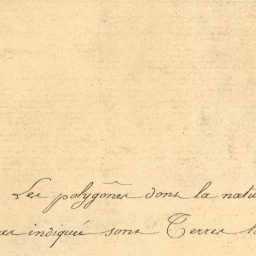 Les polygônes dont la natu
pas indiquée sont Terres l